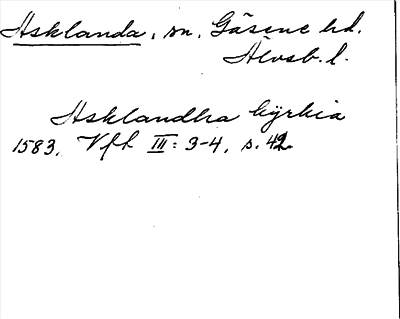 Asklanda, sn. Gäsene hd.
Älvsb. l.
Asklandha kÿrkia
1583. Vfh III: 3-4, s. 42